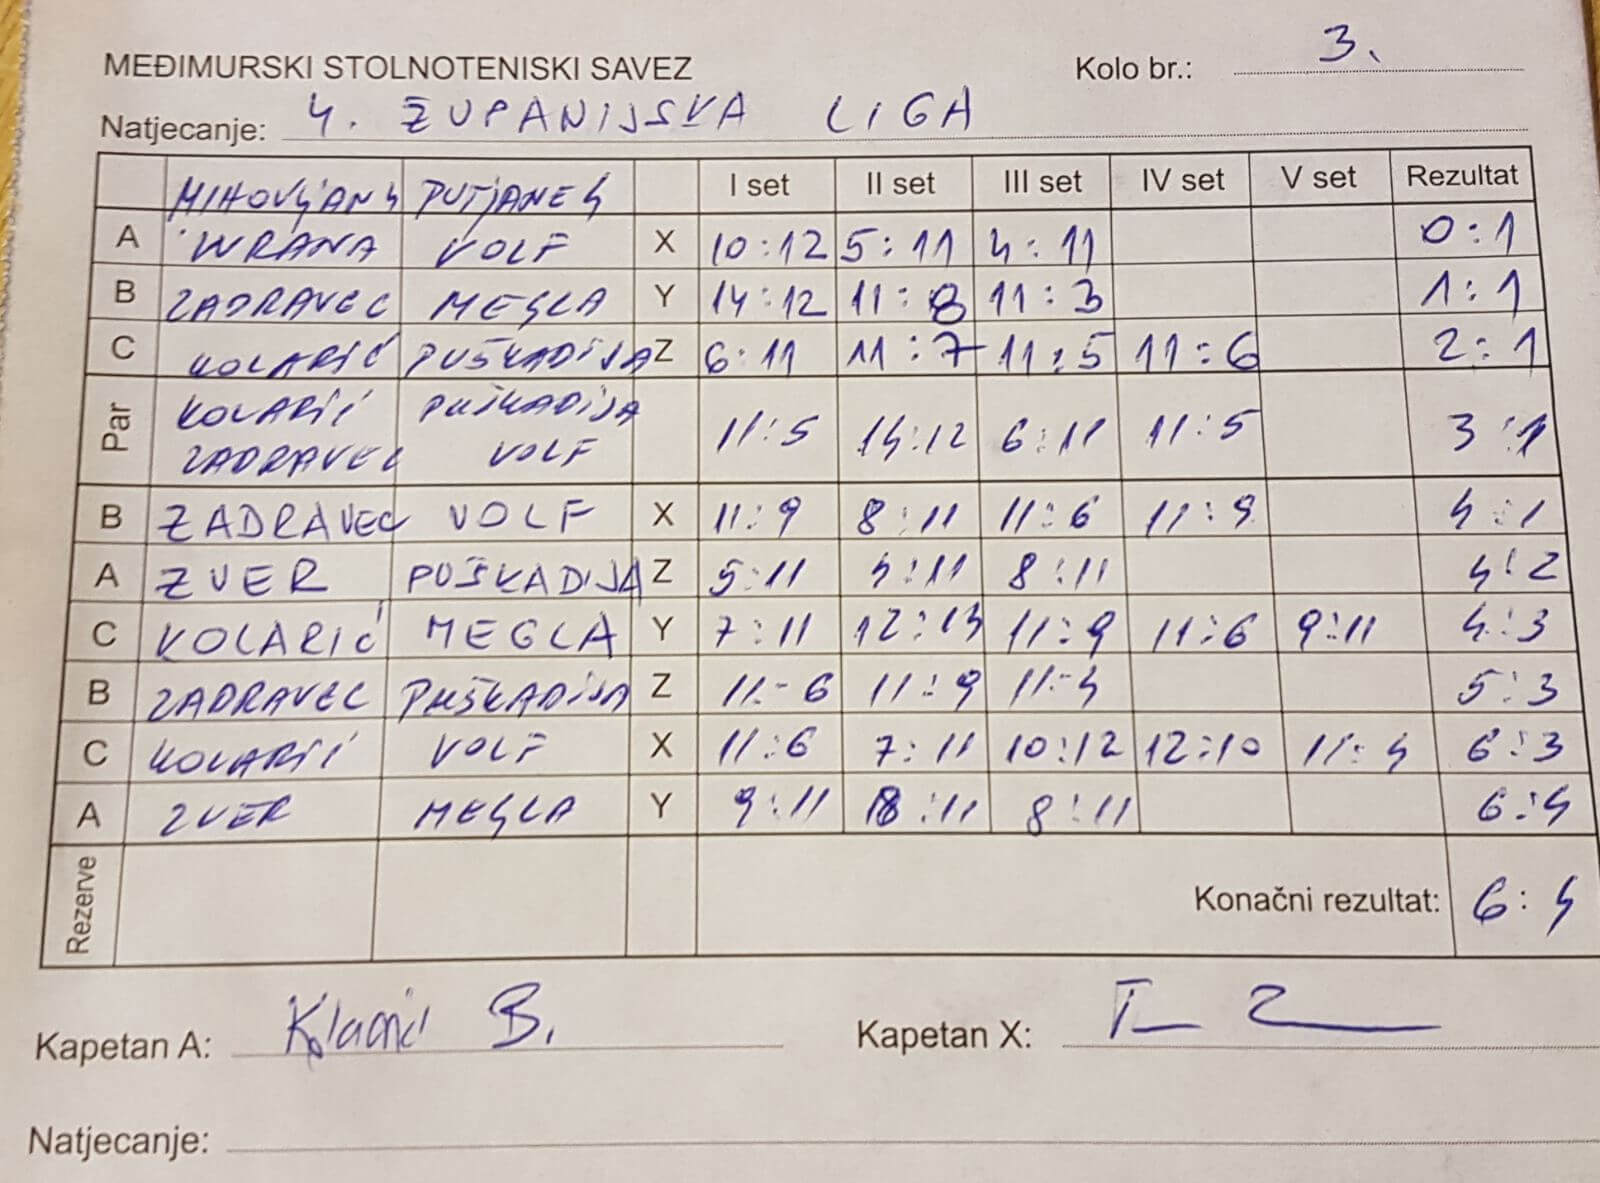 MEĐIMURSKI STOLNOTENISKI SAVEZ Kolo br.: 3.
Natjecanje: 4. ŽUPANIJSKA LIGA
MIHOVLJAN 4 PUTJANE 4 I set II set III set IV set V set Rezultat
A WRANA VOLF X 10:12 5:11 4:11 0:1
B ZADRAVEC MEGLA Y 14:12 11:8 11:3 1:1
C KOLARIĆ PUŠKADIJA Z 6:11 11:7 11:5 11:6 2:1
Par KOLARIĆ PUŠKADIJA 11:5 14:12 6:11 11:5 3:1
ZADRAVEC VOLF
B ZADRAVEC VOLF X 11:9 8:11 11:6 11:9 4:1
A ZVER PUŠKADIJA Z 5:11 4:11 8:11 4:2
C KOLARIĆ MEGLA Y 7:11 12:13 11:9 11:6 9:11 4:3
B ZADRAVEC PUŠKADIJA Z 11-6 11:9 11-4 5:3
C KOLARIĆ VOLF X 11:6 7:11 10:12 12:10 11:4 6:3
A ZVER MEGLA Y 9:11 8:11 8:11 6:4
Rezerve Konačni rezultat: 6:4
Kapetan A: B. Kapetan X:
Natjecanje: